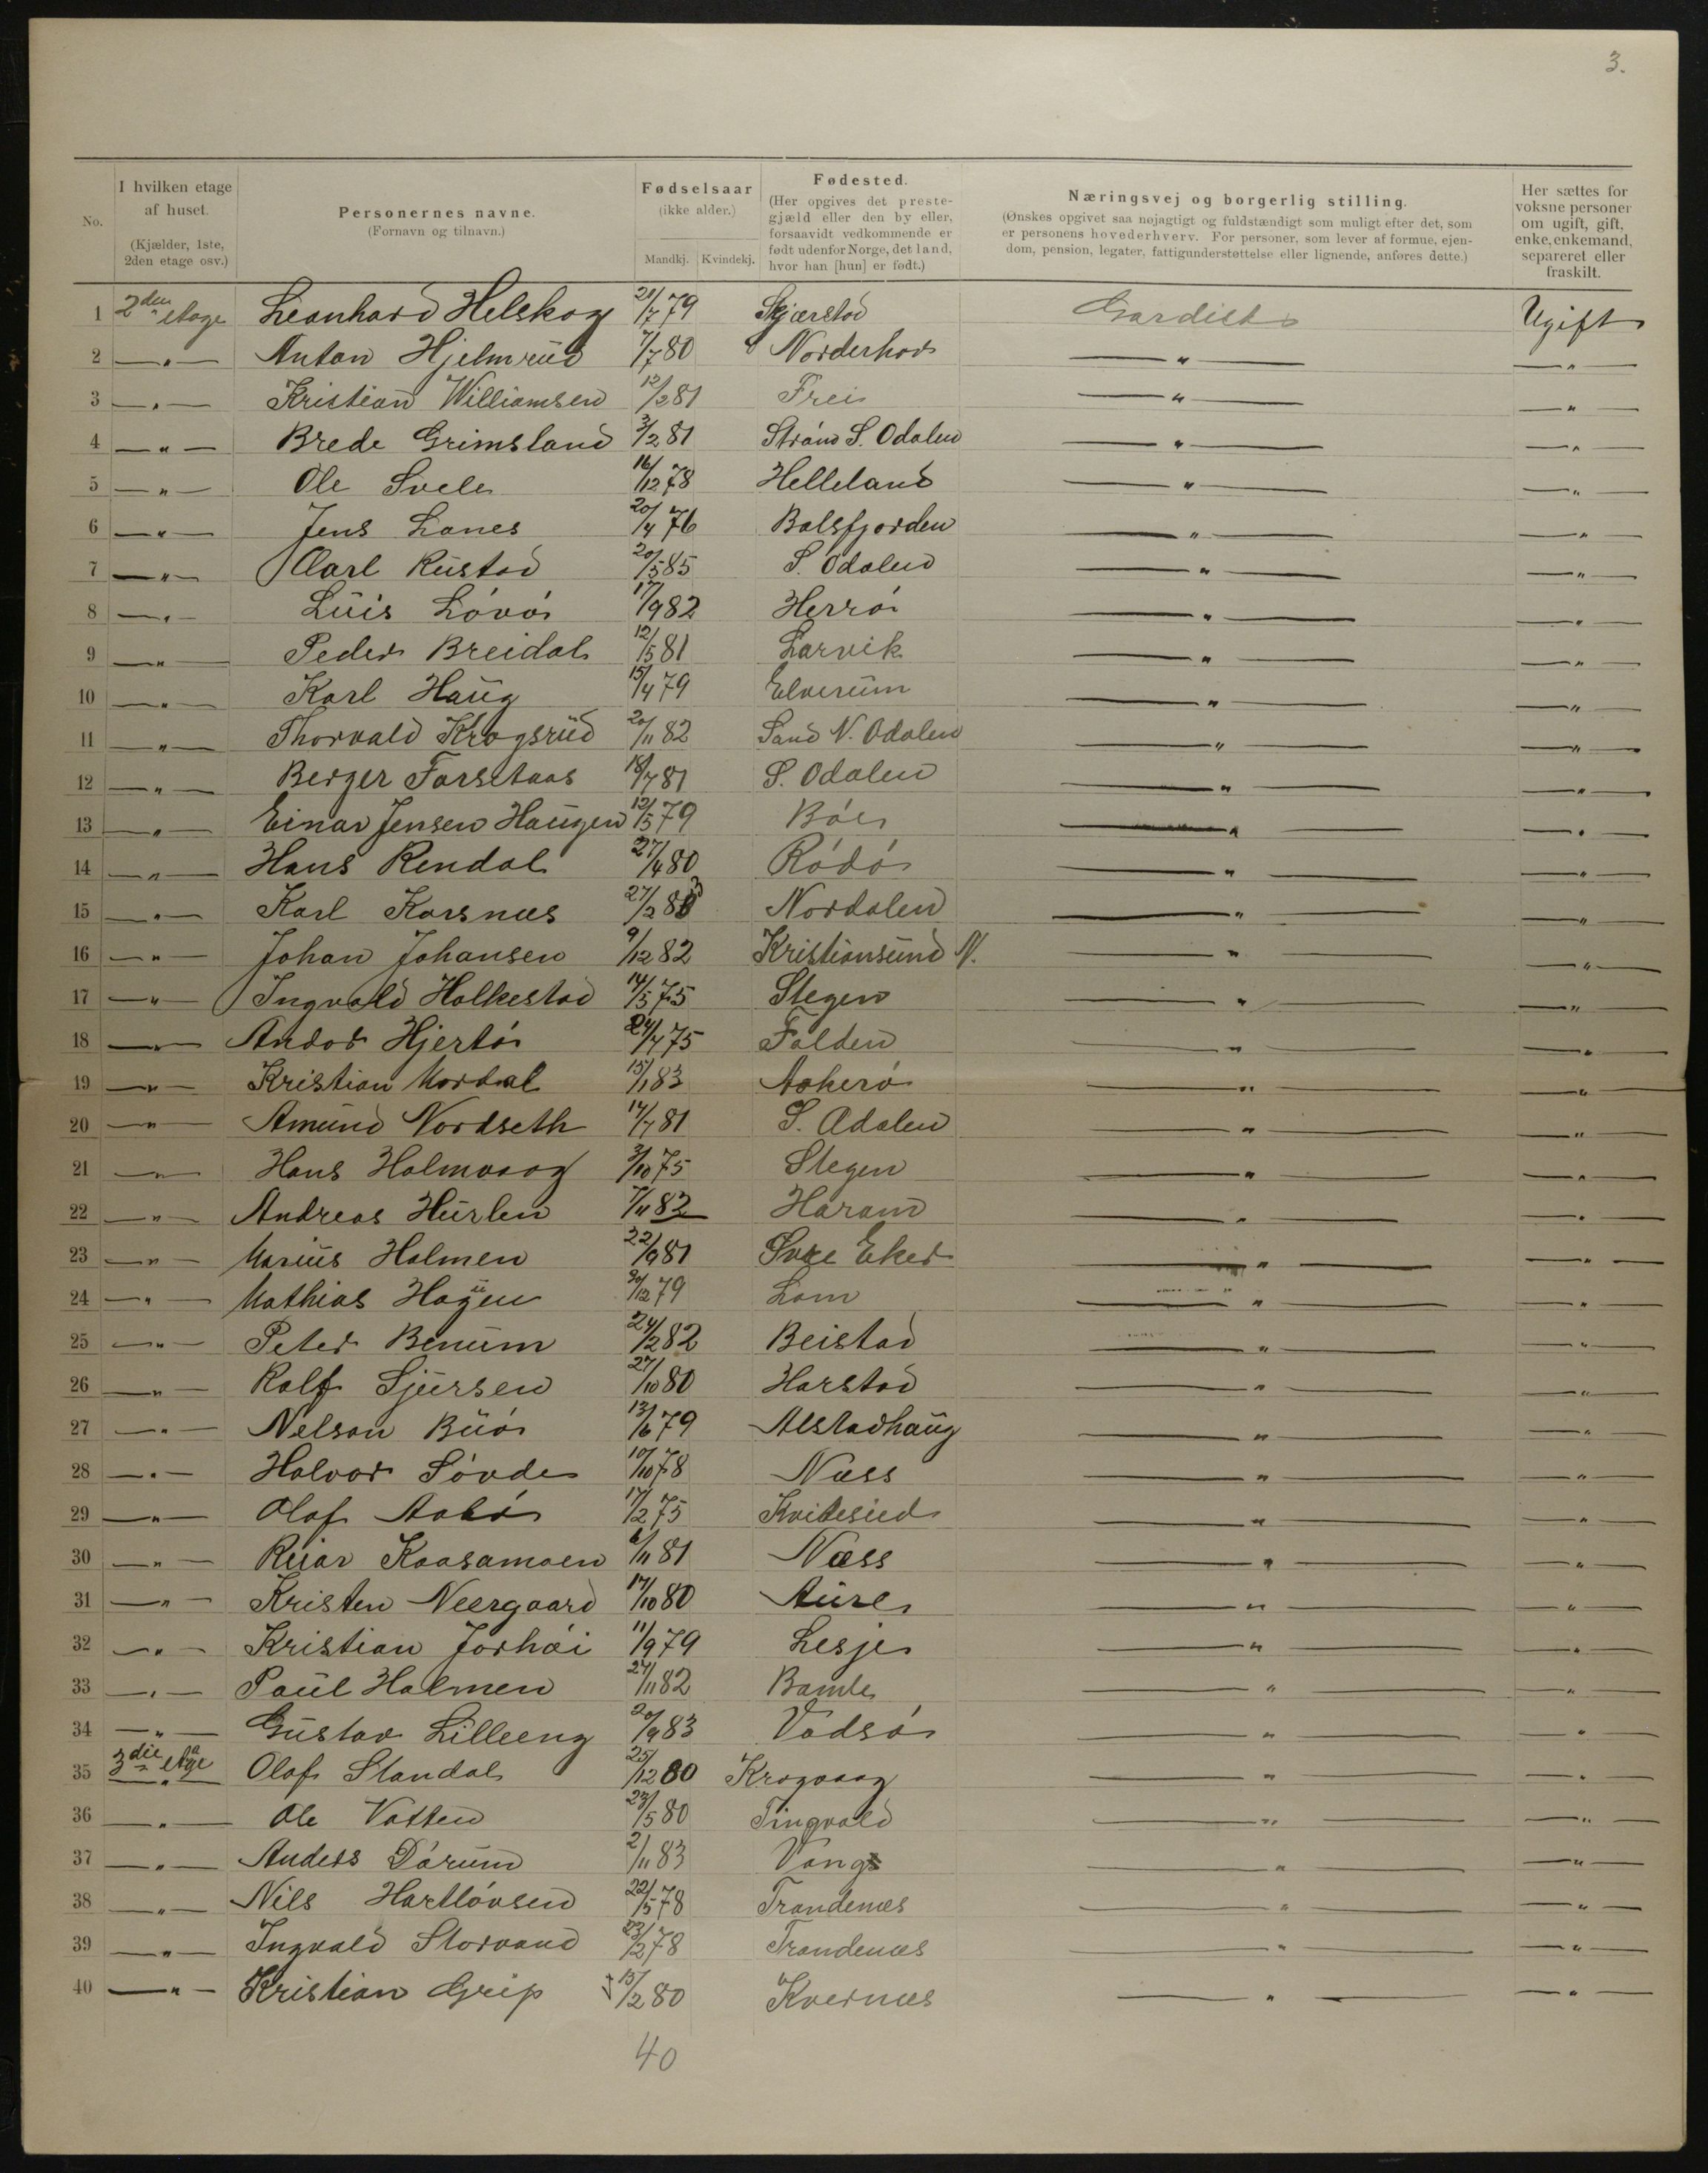 3.
No.
I hvilken etage af huset. (Kjælder, 1ste, 2den etage osv.)
Personernes navne. (Fornavn og tilnavn.)
Fødselsaar (ikke alder.) Mandkj. Kvindekj.
Fødested. (Her opgives det prestegjæld eller den by eller, forsaavidt vedkommende er født udenfor Norge, det land, hvor han [hun] er født.)
Næringsvej og borgerlig stilling. (Ønskes opgivet saa nøjagtigt og fuldstændigt som muligt efter det, som er personens hovederhverv. For personer, som lever af formue, ejendom, pension, legater, fattigunderstøttelse eller lignende, anføres dette.)
Her sættes for voksne personer om ugift, gift, enke, enkemand, separeret eller fraskilt.
1 2den etage Leonhard Helskog 20/7 79 Skjærstad Gardist Ugift
2 —"— Anton Hjelmrud 7/7 80 Norderhov —"— —"—
3 —"— Kristian Williamsen 12/2 81 Frei —"— —"—
4 —"— Brede Grimsland 3/2 81 Strand S. Odalen —"— —"—
5 —"— Ole Svele 16/12 78 Helleland —"— —"—
6 —"— Jens Lanes 20/4 76 Balsfjorden —"— —"—
7 —"— Carl Rustad 20/5 85 S. Odalen —"— —"—
8 —"— Luis Lóvó 17/9 82 Herró —"— —"—
9 —"— Peder Breidal 12/5 81 Larvik —"— —"—
10 —"— Karl Haug 15/4 79 Elverum —"— —"—
11 —"— Thorvald Krogsrud 20/11 82 Sand N. Odalen —"— —"—
12 —"— Berger Farsetaas 18/7 81 S. Odalen —"— —"—
13 —"— Einar Jensen Haugen 12/5 79 Bó —"— —"—
14 —"— Hans Rendal 27/4 80 Ródó —"— —"—
15 —"— Karl Korsnæs 27/2 83 Nordalen —"— —"—
16 —"— Johan Johansen 9/12 82 Kristiansund N. —"— —"—
17 —"— Ingvald Halkestad 14/5 75 Stegen —"— —"—
18 —"— Andor Hjertó 24/7 75 Folden —"— —"—
19 —"— Kristian Mordal 15/1 83 Aakeró —"— —"—
20 —"— Amund Nordseth 14/7 81 S. Odalen —"— —"—
21 —"— Hans Holmvaag 3/10 75 Stegen —"— —"—
22 —"— Andreas Hurlen 7/11 82 Haram —"— —"—
23 —"— Marius Holmen 22/9 81 Óvre Eker —"— —"—
24 —"— Mathias Hagen 30/12 79 Lom —"— —"—
25 —"— Peter Benum 24/2 82 Beistad —"— —"—
26 —"— Rolf Sjursen 27/10 80 Harstad —"— —"—
27 —"— Nelson Buó 13/6 79 Alstadhaug —"— —"—
28 —"— Halvor Sóvde 10/10 78 Næss —"— —"—
29 —"— Olaf Aabó 17/2 75 Kviteseid —"— —"—
30 —"— Reiar Kaasamoen 6/11 81 Næss —"— —"—
31 —"— Kristen Neergaard 17/10 80 Aure —"— —"—
32 —"— Kristian Jorhói 11/9 79 Lesje —"— —"—
33 —"— Paul Holmen 24/11 82 Bamle —"— —"—
34 —"— Gustav Lilleeng 20/9 83 Vadsó —"— —"—
35 3die etage —"— Olaf Standal 25/12 80 Krogvaag —"— —"—
36 —"— Ole Vatten 23/5 80 Tingvold —"— —"—
37 —"— Anders Dórum 2/11 83 Vang —"— —"—
38 —"— Nils Hartlóvsen 22/5 78 Trondenæs —"— —"—
39 —"— Ingvald Storvand 23/2 78 Trondenæs —"— —"—
40 —"— Kristian Grip 15/2 80 Kvernæs —"— —"—
40